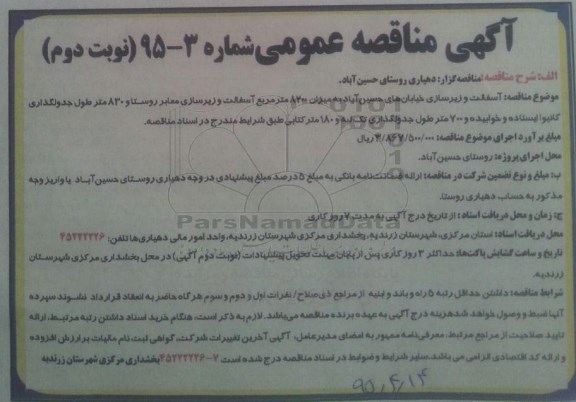 آگهی مناقصه عمومی شماره ۳-۹۵ (نوبت دوم)
الف: شرح مناقصه: مناقصه‌گزار: دهیاری روستای حسین‌آباد.
موضوع مناقصه: آسفالت و زیرسازی خیابان‌های حسین‌آباد به میزان ۸۲۰۰ مترمربع آسفالت و زیرسازی معابر روستا و ۸۳۰ متر طول جدولگذاری
کانیوا ایستاده و خوابیده و ۷۰۰ متر طول جدولگذاری تک لبه و ۱۸۰ متر کتابی طبق شرایط مندرج در اسناد مناقصه.
مبلغ برآورد اجرای موضوع مناقصه: ۳/۸۶۷/۵۰۰/۰۰۰ ریال
محل اجرای پروژه: روستای حسین‌آباد.
ب: مبلغ و نوع تضمین شرکت در مناقصه: ارائه ضمانت‌نامه بانکی به مبلغ ۵ درصد مبلغ پیشنهادی در وجه دهیاری روستای حسین‌آباد یا واریز وجه
مذکور به حساب دهیاری روستا.
ج: زمان و محل دریافت اسناد: از تاریخ درج آگهی به مدت ۷ روز کاری
محل دریافت اسناد: استان مرکزی، شهرستان زرندیه، بخشداری مرکزی شهرستان زرندیه، واحد امور مالی دهیاری‌ها تلفن: ۴۵۲۲۲۲۲۶
تاریخ و ساعت گشایش پاکت‌ها: حداکثر ۳ روز کاری پس از پایان مهلت تحویل پیشنهادات (نوبت دوم آگهی) در محل بخشداری مرکزی شهرستان
زرندیه.
شرایط مناقصه: داشتن حداقل رتبه ۵ راه و باند و ابنیه از مراجع ذی‌صلاح / نفرات اول و دوم و سوم هرگاه حاضر به انعقاد قرارداد نشوند سپرده
آنها ضبط و وصول خواهد شد هزینه درج آگهی به عهده برنده مناقصه می‌باشد. لازم به ذکر است، هنگام خرید اسناد داشتن رتبه مرتبط، ارائه
تایید صلاحیت از مراجع مرتبط، معرفی‌نامه ممهور به امضای مدیرعامل، آگهی آخرین تغییرات شرکت، گواهی ثبت نام مالیات بر ارزش افزوده
و ارائه کد اقتصادی الزامی می‌باشد. سایر شرایط و ضوابط در اسناد مناقصه درج شده است ۷-۴۵۲۲۲۲۲۶ بخشداری مرکزی شهرستان زرندیه
ParsNamadData
۹۵,۴,۱۴